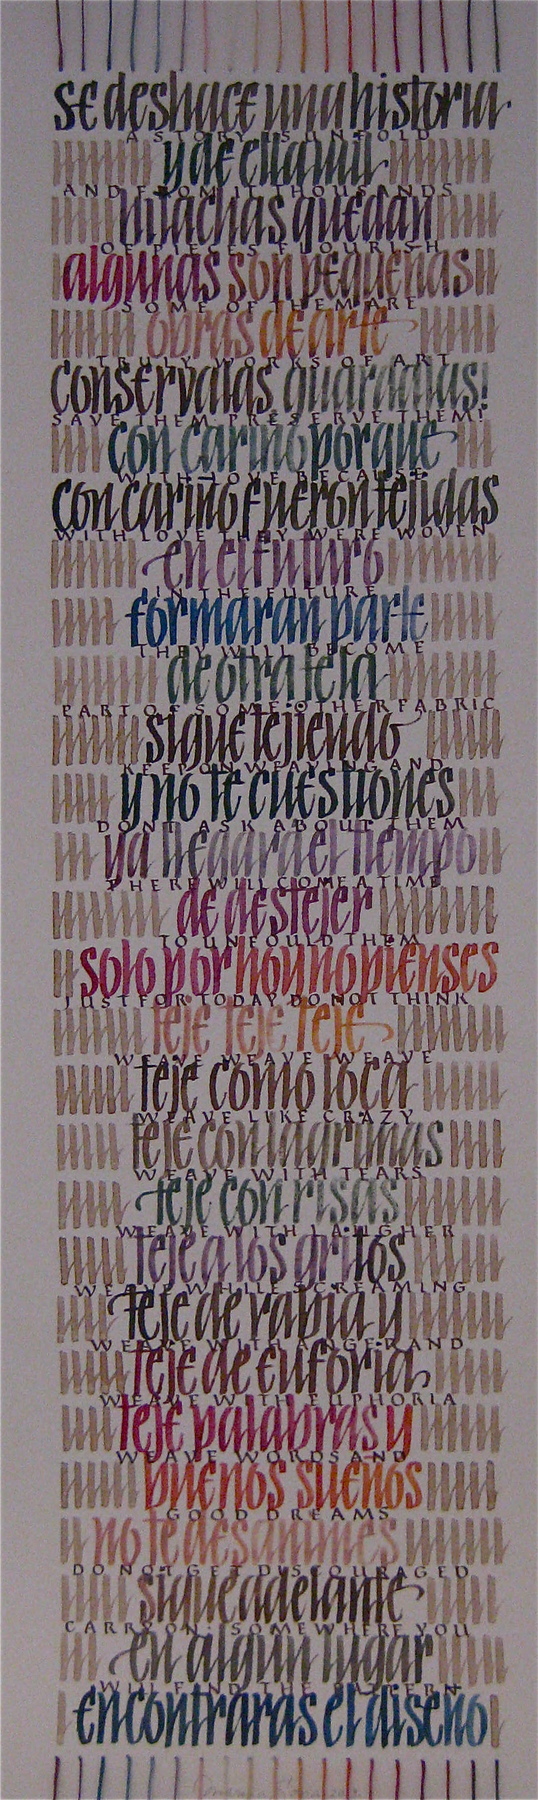 se deshace una historia
A STORY IS UNFOLD
y de ella mil
AND FROM IT THOUSANDS
hilachas quedan
OF PIECES FLOURISH
algunas son pequeñas
SOME OF THEM ARE
obras de arte
TRULY WORKS OF ART
consérvalas guárdalas!
SAVE THEM PRESERVE THEM!
con cariño porque
WITH LOVE BECAUSE
con cariño fueron tejidas
WITH LOVE THEY WERE WOVEN
en el futuro
IN THE FUTURE
formaran parte
THEY WILL BECOME
de otra tela
PART OF SOME OTHER FABRIC
sigue tejiendo
KEEP ON WEAVING AND
y no te cuestiones
DONT ASK ABOUT THEM
ya llegara el tiempo
THERE WILL COME A TIME
de destejer
TO UNFOULD THEM
solo por hoy no pienses
JUST FOR TODAY DO NOT THINK
teje teje teje
WEAVE WEAVE WEAVE
teje como loca
WEAVE LIKE CRAZY
teje con lagrimas
WEAVE WITH TEARS
teje con risas
WEAVE WITH LAUGHER
teje a los gritos
WEAVE WHILE SCREAMING
teje de rabia y
WEAVE WITH ANGER AND
teje de euforia
WEAVE WITH EUPHORIA
teje palabras y
WEAVE WORDS AND
buenos sueños
GOOD DREAMS
no te desanimes
DO NOT GET DISCOURAGED
sigue adelante
CARRY ON · SOMEWHERE YOU
en algun lugar
WILL FIND THE PATTERN
encontraras el diseño